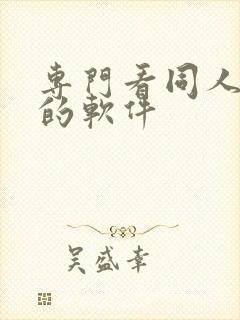 專門看同人
的軟件
吳盛幸